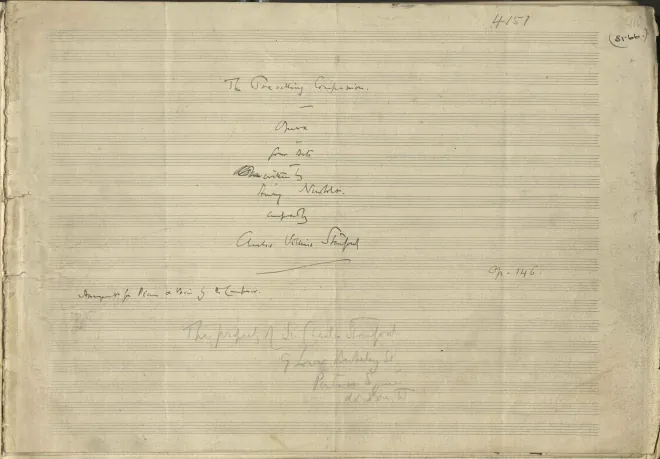 4151
(Bibb.)
The Travelling Companion.
Opera
in
four acts
written by
Henry Newbolt.
composed by
Charles Villiers Stanford
Op. 146.
Arrangement for Piano & Voice by the Composer.
The property of Sir Charles Stanford
9 Lower Berkeley St.
Portman Square
London W